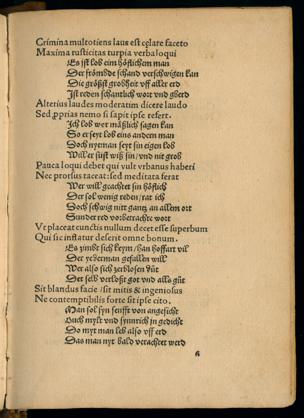 Crimina multotiens laus est celare faceto
Maxima rusticitas turpia verba loqui
Es ist lob eim höflischem man
Der frömbde schand verschwigen kan
Die gröst grobheit vff aller erd
Ist reden schantlich wort vnd gberd
Alterius laudes moderatim dicere laudo
Sed pprias nemo si sapit ipse refert.
Ich lob wer mäßlich sagen kan
So er seyt lob eins andern man
Doch nyeman seyt sin eigen lob
Will er sust wiß sin / vnd nit grob
Pauca loqui debet qui vult vrbanus haberi
Nec prorsus taceat: sed meditata ferat
Wer will geachtet sin höflich
Der sol wenig reden / rat ich
Doch schwig nitt gantz an allem ort
Sunder red vorbetrachte wort
Vt placeat cunctis nullum decet esse superbum
Qui sic instatur deserit omne bonum.
Es zimbt sich keym / han hoffart vil
Der yederman gefallen will
Wer also sich zerblosen dut
Der selb verloßt got vnd alls gut
Sit blandus facie / sit mitis & ingeniosus
Ne contemptibilis forte sit ipse cito.
Man sol syn senfft von angesicht
Ouch mylt vnd synnrich in gedicht
Do myt man leb also vff erd
Das man nyt bald verachtet werd